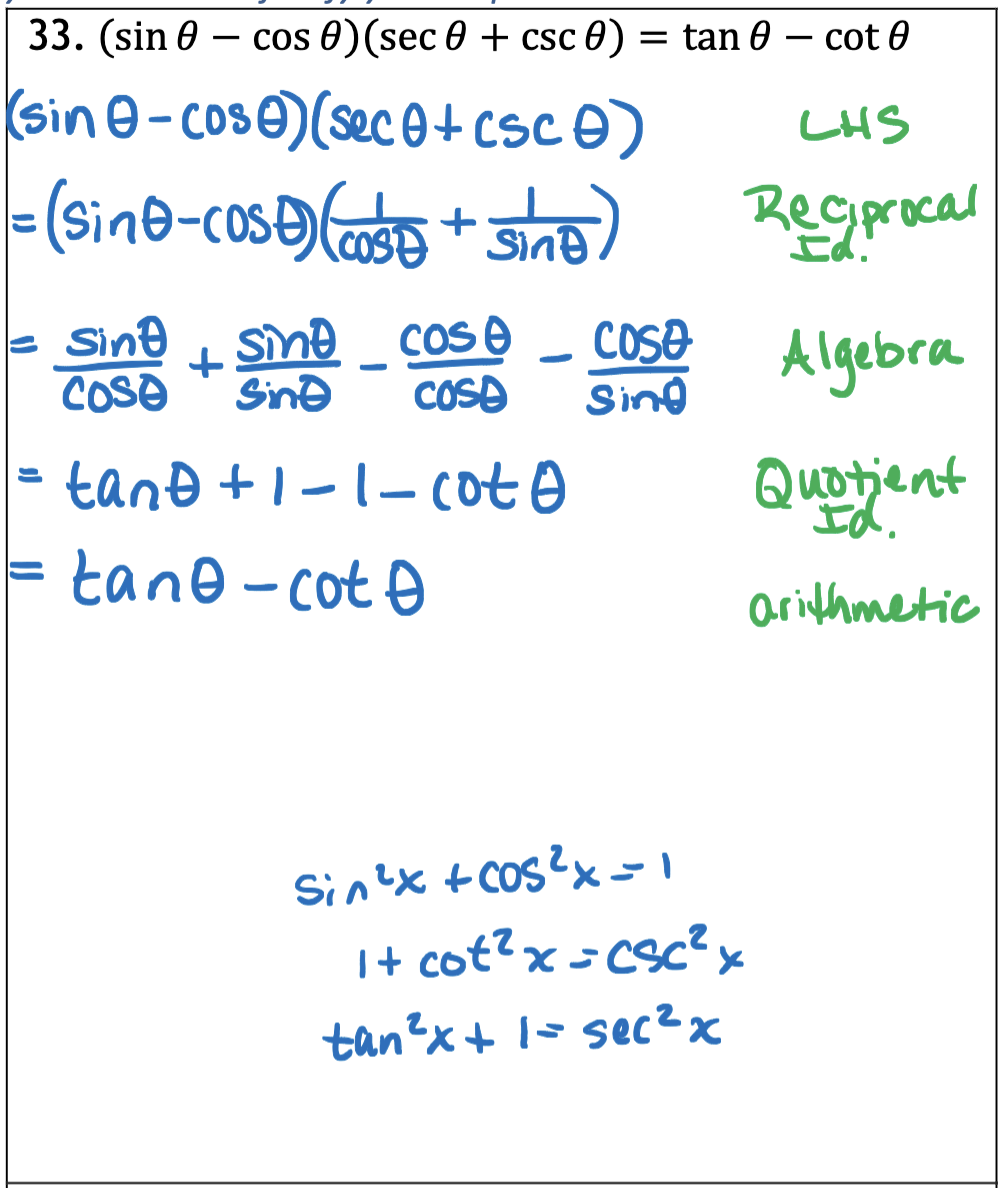 33. (sin θ − cos θ)(sec θ + csc θ) = tan θ − cot θ
(sin θ - cos θ)(sec θ + csc θ) LHS
= (sin θ - cos θ)(1/cos θ + 1/sin θ) Reciprocal Id.
= sin θ/cos θ + sin θ/sin θ - cos θ/cos θ - cos θ/sin θ Algebra
= tan θ + 1 - 1 - cot θ Quotient Id.
= tan θ - cot θ arithmetic
sin²x + cos²x = 1
1 + cot²x = csc²x
tan²x + 1 = sec²x